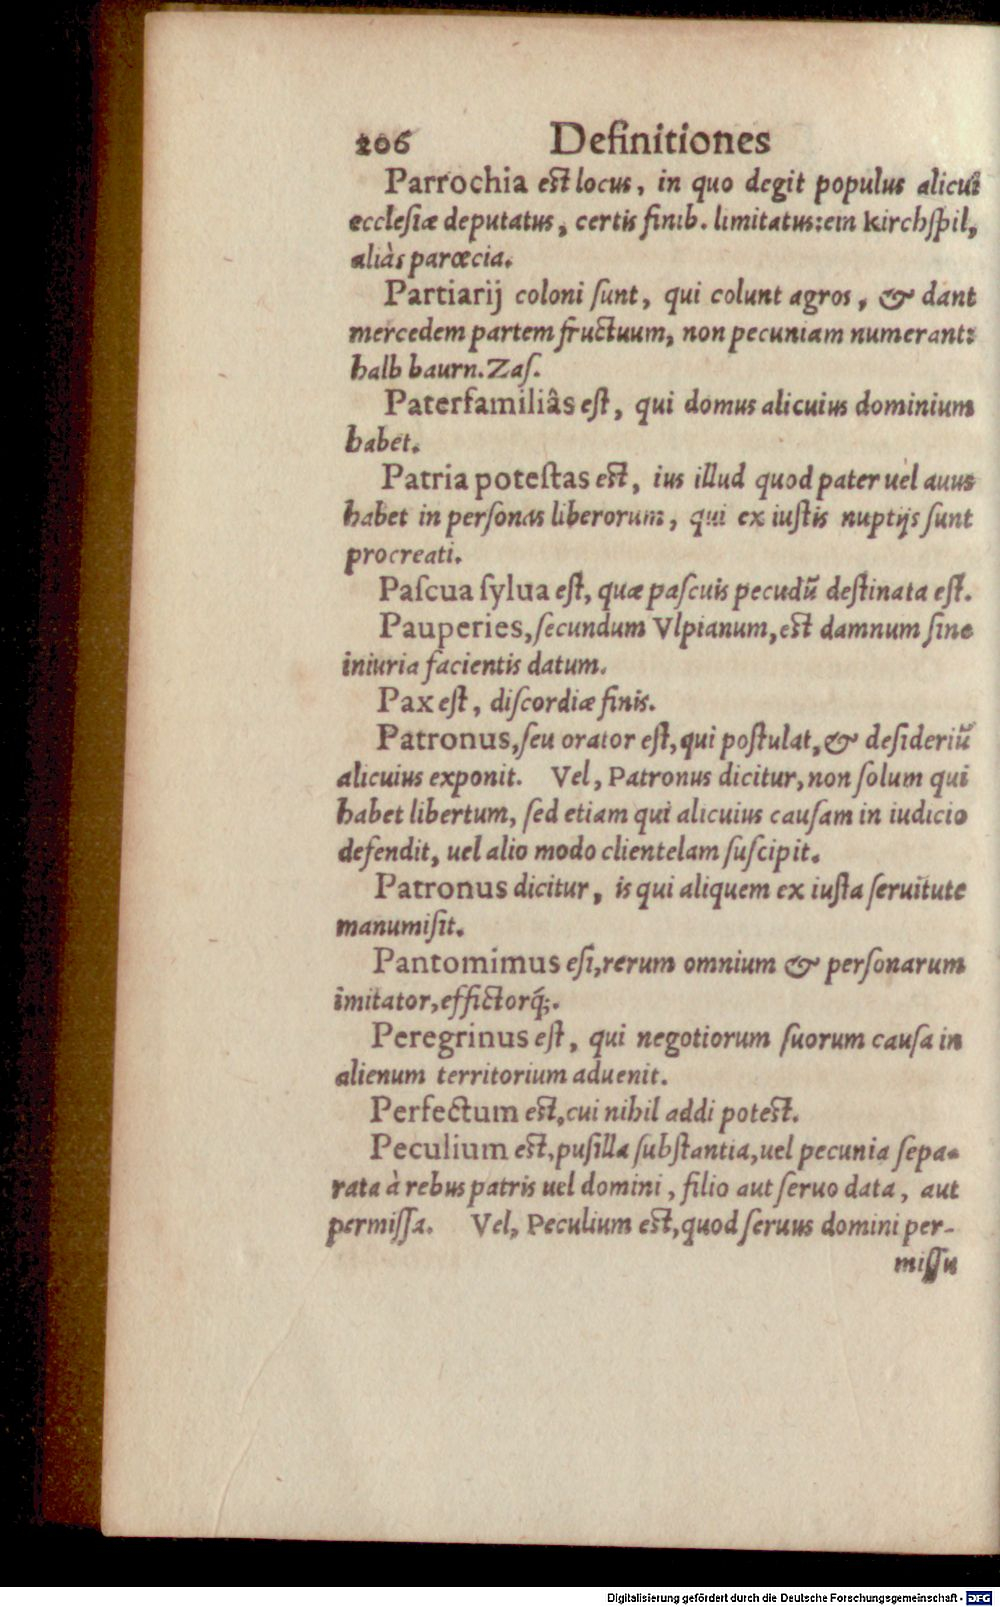 206 Definitiones
Parrochia est locus, in quo degit populus alicui
ecclesiæ deputatus, certis finib. limitatus: ein kirchſpil,
aliàs parœcia.
Partiarij coloni ſunt, qui colunt agros, & dant
mercedem partem fructuum, non pecuniam numerant:
halb baurn. Zaſ.
Paterfamiliâs eſt, qui domus alicuius dominium
habet.
Patria poteſtas est, ius illud quod pater uel auus
habet in perſonas liberorum, qui ex iuſtis nuptijs ſunt
procreati.
Paſcua ſylua eſt, quæ paſcuis pecudũ deſtinata eſt.
Pauperies, ſecundum Vlpianum, est damnum ſine
iniuria facientis datum.
Pax eſt, diſcordiæ finis.
Patronus, ſeu orator eſt, qui poſtulat, & deſideriũ
alicuius exponit. Vel, Patronus dicitur, non ſolum qui
habet libertum, ſed etiam qui alicuius cauſam in iudicio
defendit, uel alio modo clientelam ſuſcipit.
Patronus dicitur, is qui aliquem ex iuſta ſeruitute
manumiſit.
Pantomimus eſt, rerum omnium & perſonarum
imitator, effictorq́;.
Peregrinus eſt, qui negotiorum ſuorum cauſa in
alienum territorium aduenit.
Perfectum est, cui nihil addi potest.
Peculium est, puſilla ſubſtantia, uel pecunia ſepa-
rata à rebus patris uel domini, filio aut ſeruo data, aut
permiſſa. Vel, Peculium est, quod ſeruus domini per-
miſſu
Digitalisierung gefördert durch die Deutsche Forschungsgemeinschaft - DFG